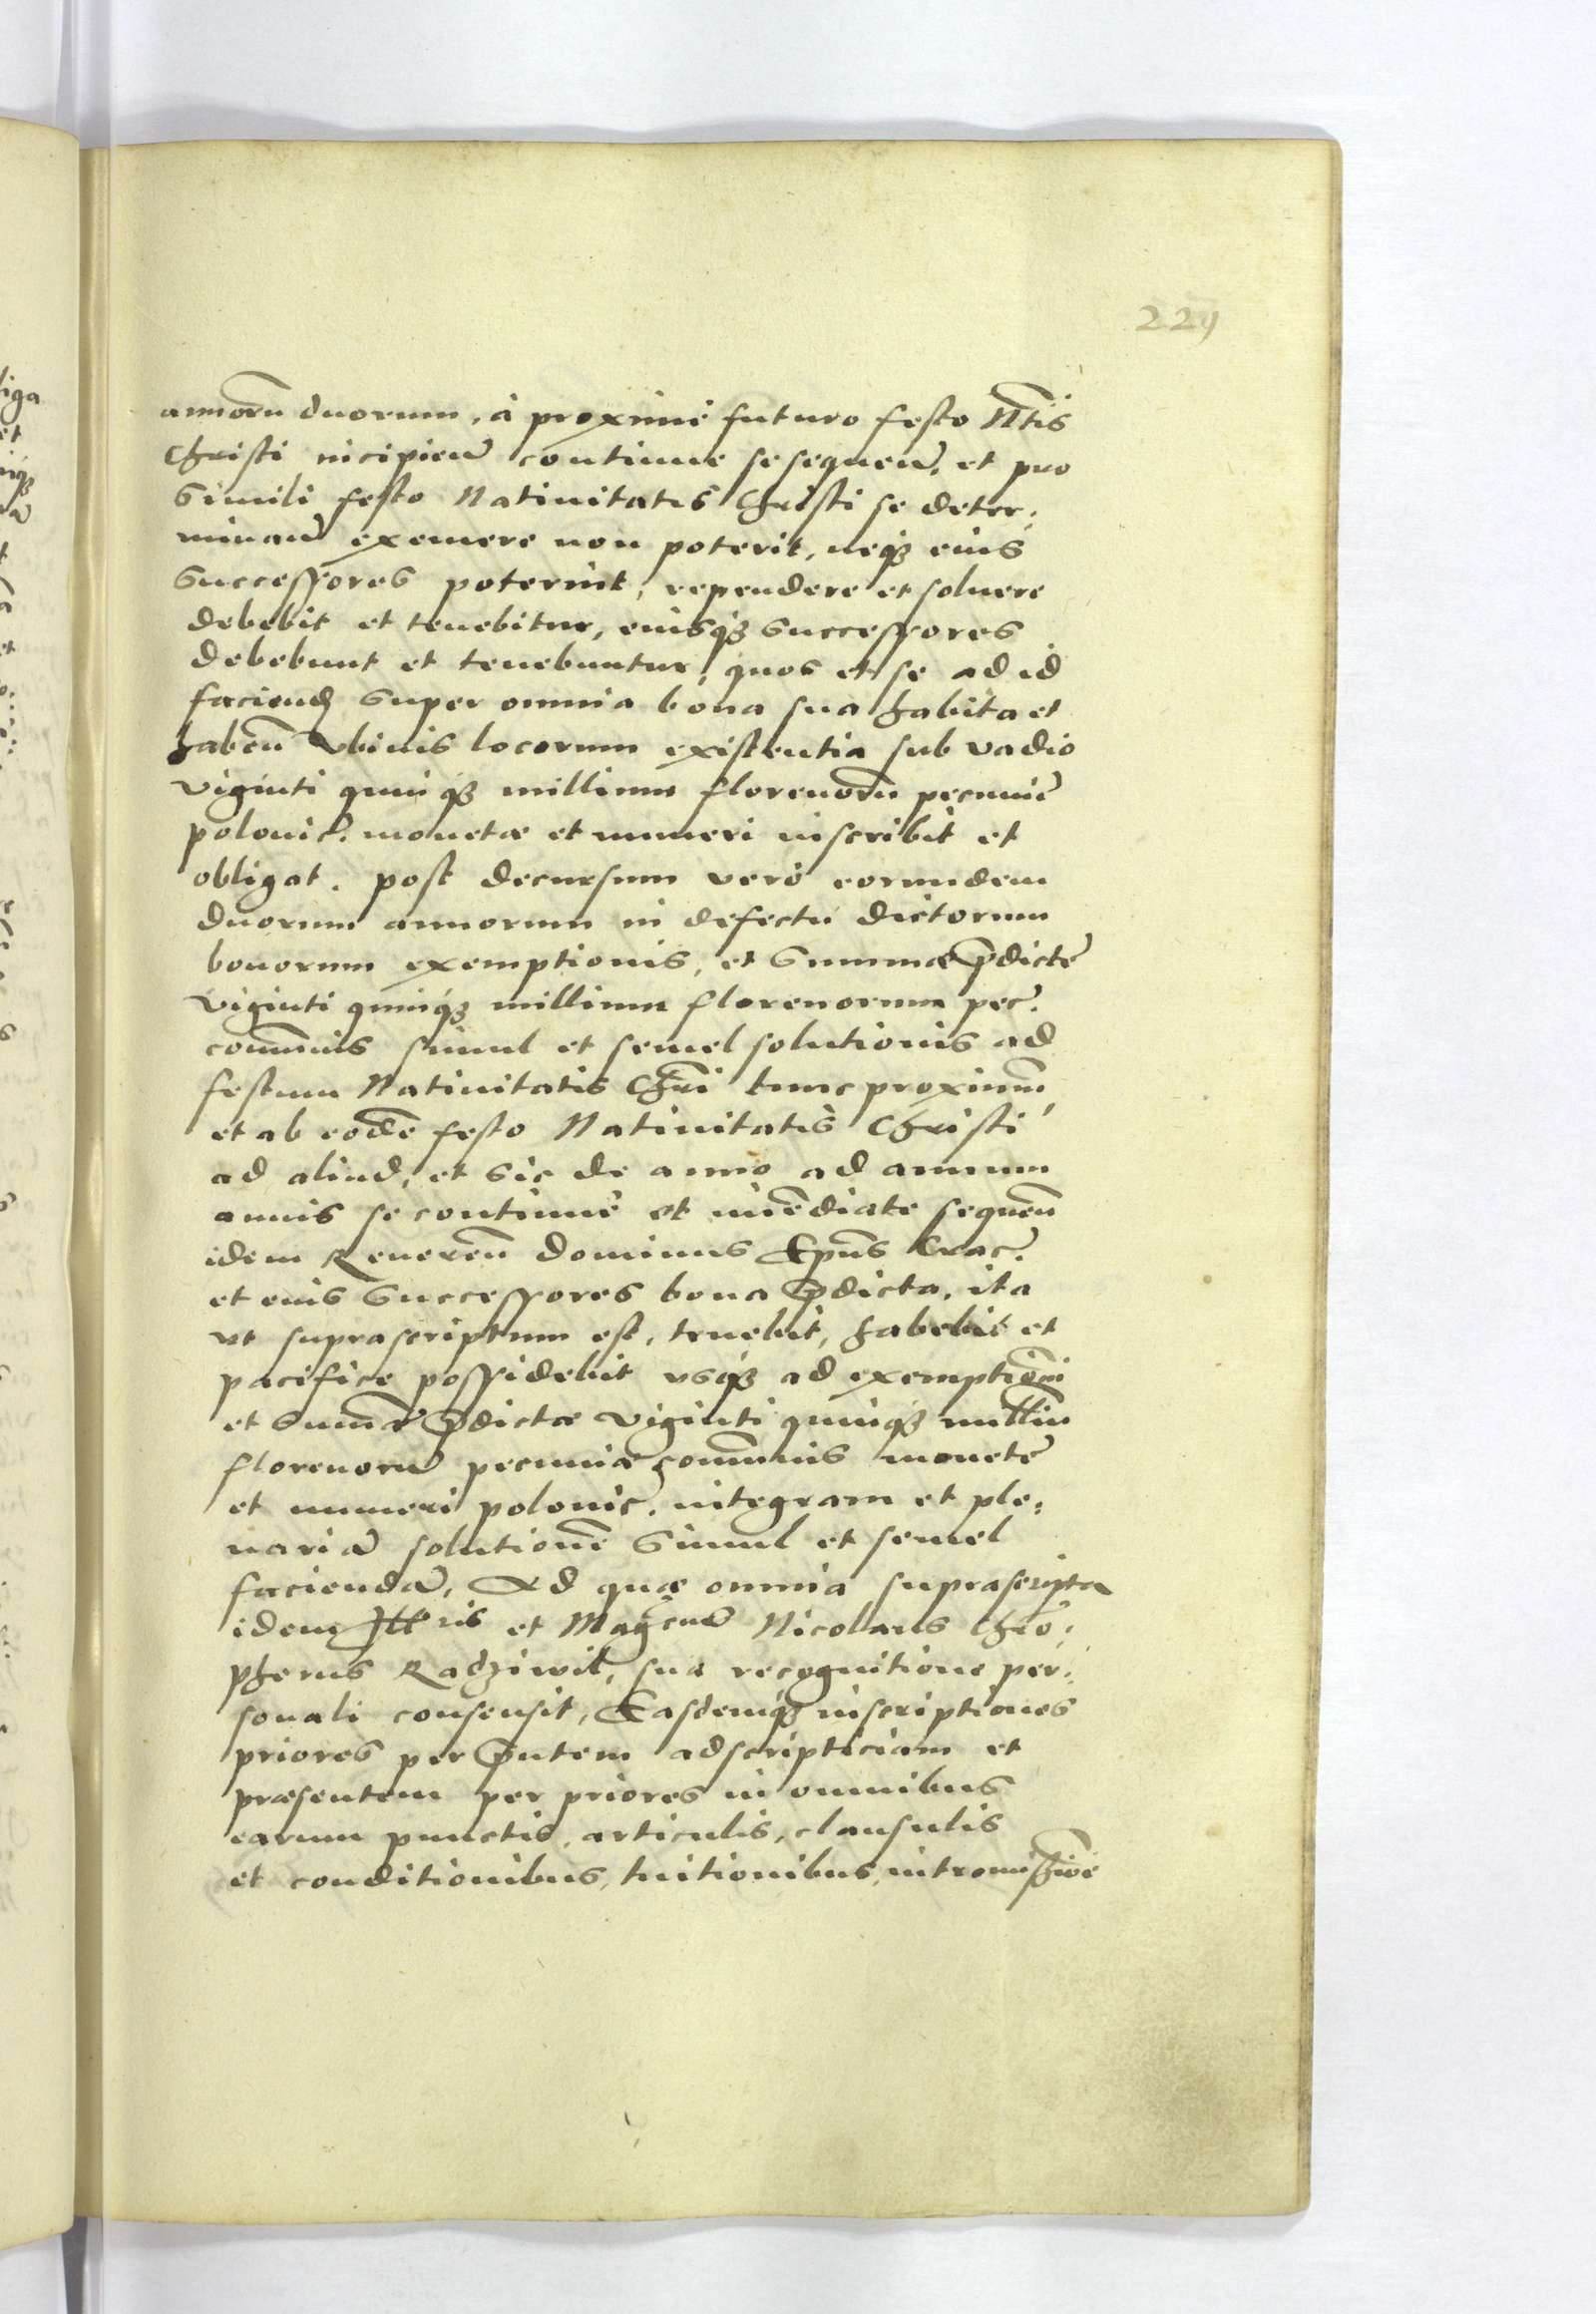 229
annorũ duorum, à proximè futuro festo Ntĩs
Christi incipieñ continue se sequeñ, et pro
simili festo Natiuitatis Christi se deter,
minañ exemere non poterit, neqз eius
successores poterint, rependere et soluere
debebit et tenebitur, eiusqз successores
debebunt et tenebuntur, quos et se ad id
faciend super omnia bona sua habita et
habeñ vbiuis locorum existentia sub vadio
viginti quinqз millium florenorũ pecuniẽ
polonic̃. monetæ et numeri inscribit et
obligat. post decursum verò eorundem
duorum annorum in defectu dictorum
bonorum exemptionis, et summæ p̃dictẽ
viginti quinqз millium florenorum pec̃.
com̃unis simul et semel solutionis ad
festum Natiuitatis Chr̃i tunc proximũ
et ab eodẽ festo Natiuitatis Christi
ad aliud, et sic de anno ad annum
annis se continuè et im̃ediate sequeñ
idem Reuereñ Dominus Ep̃us Crac̃.
et eius successores bona p̃dicta, ita
vt suprascriptum est, tenebit, habebit et
pacifice possidebit vsqз ad exemptiõni
et sum̃æ p̃dictæ viginti quinqз milliũ
florenorũ pecuniæ com̃unis monetẽ
et numeri polonic̃. integram et ple,
nariã solutionẽ simul et semel
faciendã, Ad quæ omnia suprascripta
idem Ill̃ris et Mag̃cus Nicolaus Chrõ,
pherus Radziwil, sua recognitione per,
sonali consensit, Easdemqз inscriptiones
priores per p̃ntem adscripticiam et
præsentem per priores in omnibus
earum punctis, articulis, clausulis
et conditionibus, tuitionibus, intromissiõe